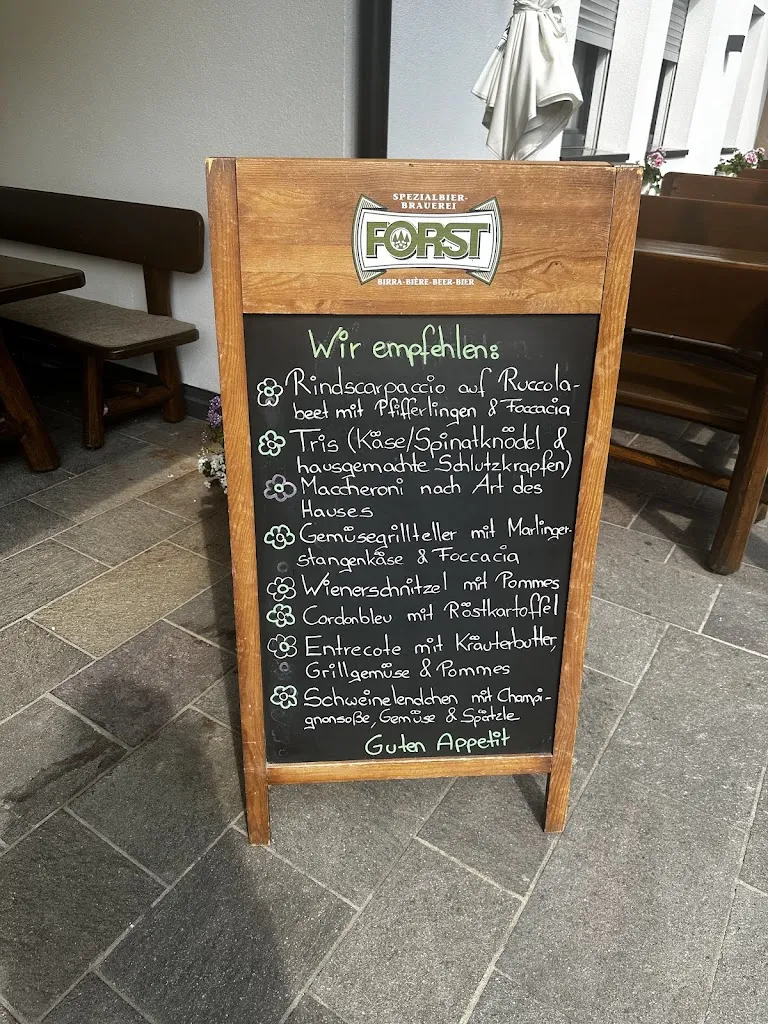 SPEZIALBIER-
BRAUEREI
FORST
BIRRA-BIÈRE-BEER-BIER
Wir empfehlen:
Rindscarpaccio auf Ruccola-
beet mit Pfifferlingen & Foccacia
Tris (Käse/Spinatknödel &
hausgemachte Schlutzkrapfen)
Maccheroni nach Art des
Hauses
Gemüsegrillteller mit Marlinger-
stangenkäse & Foccacia
Wienerschnitzel mit Pommes
Cordonbleu mit Röstkartoffel
Entrecote mit Kräuterbutter,
Grillgemüse & Pommes
Schweinelendchen mit Champi-
gnonsoße, Gemüse & Spätzle
Guten Appetit